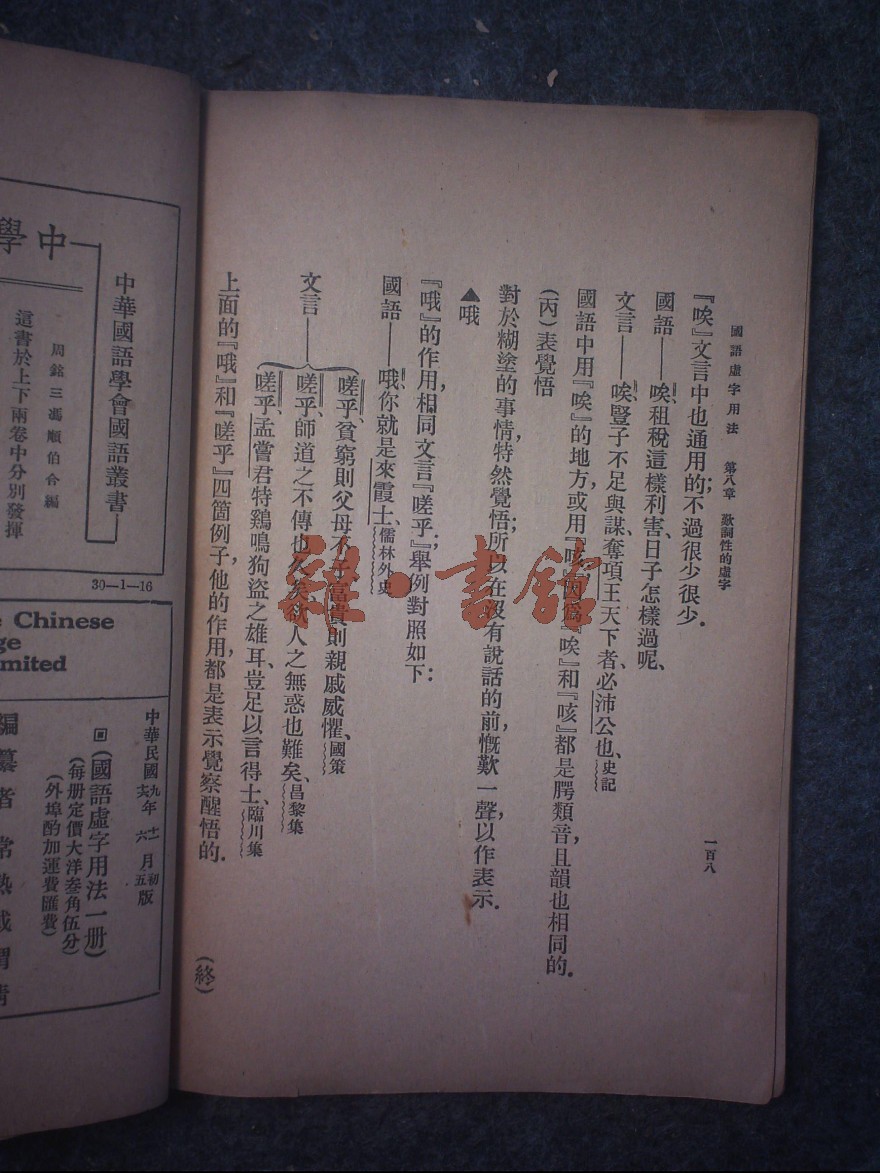 國語虛字用法　第八章　歎詞性的虛字
一百八
『唉』文言中也通用的；不過很少很少．
國語——唉、租稅這樣利害、日子怎樣過呢、
文言——唉、豎子不足與謀、奪項王天下者、必沛公也、史記
國語中用『唉』的地方，或用『咳』，因爲『唉』和『咳』都是腭類音，且韻也相同的．
(丙)表覺悟
對於糊塗的事情，特然覺悟；所以在沒有說話的前，慨歎一聲，以作表示．
▲哦
『哦』的作用，相同文言『嗟乎』；舉例對照如下：
國語——哦、你就是來霞士、儒林外史
嗟乎、貧窮則父母不子、富貴則親戚威懼、國策
文言——嗟乎、師道之不傳也久矣、欲人之無惑也難矣、昌黎集
嗟乎、孟嘗君特鷄鳴狗盜之雄耳、豈足以言得士、臨川集
上面的『哦』和『嗟乎』四箇例子，他的作用，都是表示覺察醒悟的．
(終)
雜·書館
中華國語學會國語叢書
中學
周銘三馮順伯合編
這書於上下兩卷中分別發揮
30—1—16
Chinese
mited
中華民國九年十二月初版
▣(國語虛字用法一册)
(每册定價大洋叁角伍分)
(外埠酌加運費匯費)
編纂者　常熟戴渭清